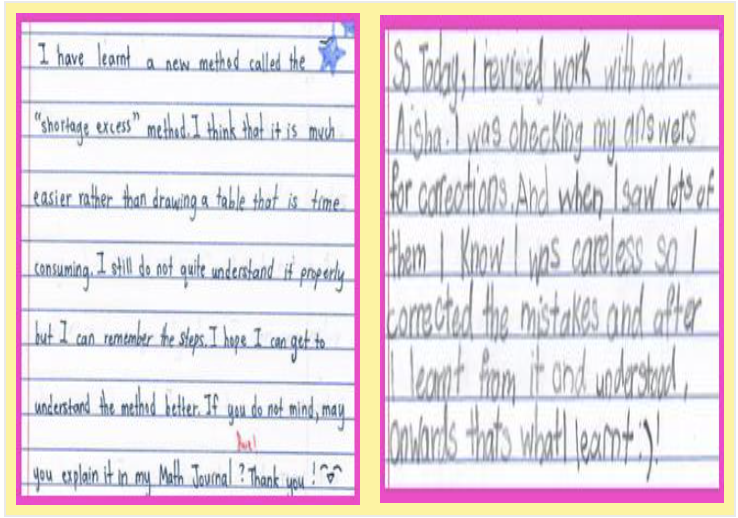 I have learnt a new method called the
"shortage excess" method. I think that it is much
easier rather than drawing a table that is time
consuming. I still do not quite understand it properly
but I can remember the steps. I hope I can get to
understand the method better. If you do not mind, may
you explain it in my Math Journal? Thank you!
So Today, I revised work with mdm.
Aisha. I was checking my answers
for corrections. And when I saw lots of
them I know I was careless so I
corrected the mistakes and after
I learnt from it and understood,
onwards thats what I learnt:)!